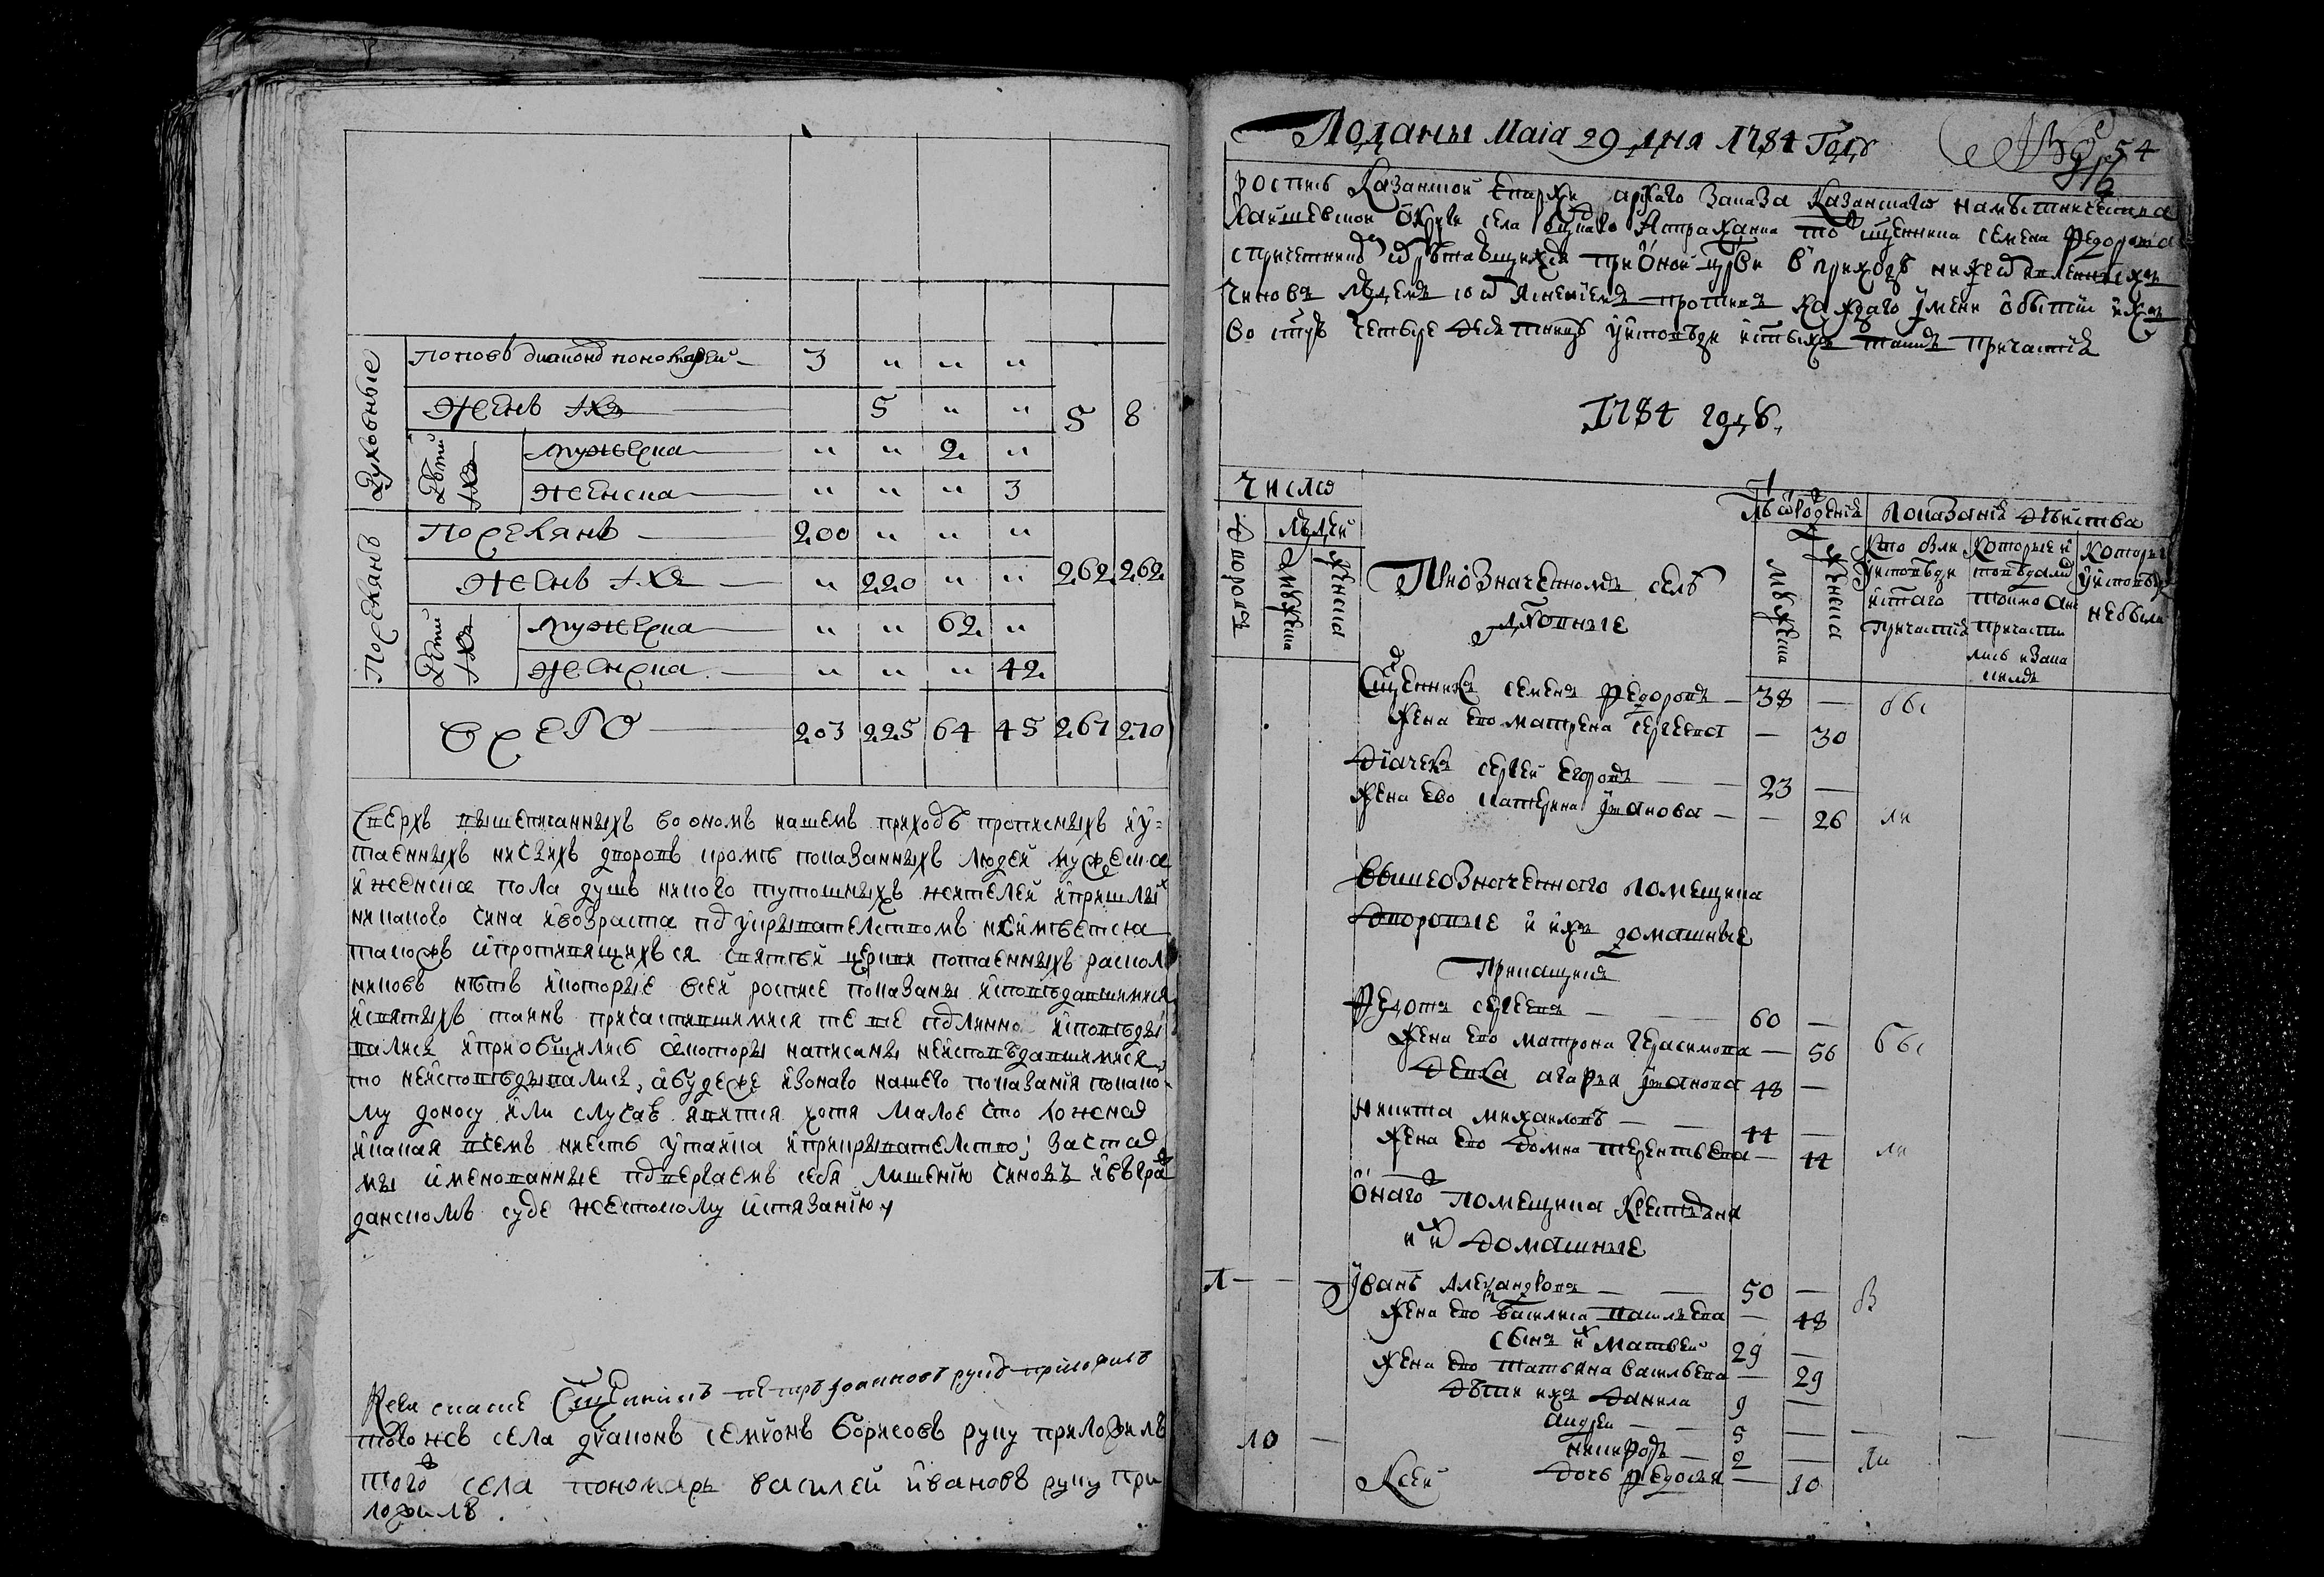 Духовные
поповъ диаконъ пономарей 3 " " "
женъ ихъ 5 " " 5 8
Дѣти ихъ
мужеска " " 2 "
женска " " " 3
Поселянъ
Поселянъ 200 " " "
женъ ихъ " 220 " " 262 262
Дѣти ихъ
мужеска " " 62 "
женска " " " 42
Всего 203 225 64 45 267 270
Сверхъ вышеписанныхъ во ономъ нашемъ приходѣ прописныхъ и у=
таенныхъ никакихъ дворовъ кромѣ показанныхъ людей мужеска
и женска пола душъ никого тутошныхъ жителей и пришлых
никакого чина и возраста под укрывателством не имѣетса
такожъ и противящихъся святѣй церкви потаенныхъ раскол
никовъ нѣтъ и которые в сей росписе показаны исповѣдавшимися
и святыхъ таинъ причастившимися те все подлинно исповѣды
вались и приобщились а которы написаны неисповѣдавшимися
то неисповѣдывались, а будеже из онаго нашего показания по како
му доносу или случаю явится хотя малое что ложное
и какая в семъ и есть утайка и прикрывателство; за что
мы имянованные подвергаемъ себя лишению чиновъ и в гра
данскомъ суде жестокому истязанию
К сей сказке сщенникъ петръ иоанновъ руку приложилъ
того жъ села дьяконъ семионъ борисовъ руку приложилъ
того села пономарь василей ивановъ руку при
ложилъ.
Поданы Маиа 29 дня 1784 Году
54
роспись Казанской епархии арскаго заказа Казанскаго намѣстничества
Лаишевской округи села Астраханки сщенника семена Федорова
с причетники обрѣтающихся при оной цркви в приходѣ нижеявленныхъ
чиновъ людемъ со изъяснениемъ противъ каждаго имени о бытии ихъ
во стую четыредесятницу у исповѣди и стыхъ таинъ причастия
1784 году
Число
Дворовъ
людей
Мужеска
Женска
В означенномъ селѣ
дховные
Лѣта от рождения
мужеска
женска
Показание дѣйства
Кто были у исповѣди и стаго причастия
Которые исповѣдались токмо а не причастились и за каким
Которые у исповѣди не были
Сщенникъ семенъ федоровъ 38 — бы
Жена ево матрена сергеева — 30
Дiачекъ сергей егоровъ 23 —
Жена ево катерина Iванова — 26 ли
Вышеозначенного помещика
Дворовые и ихъ домашные
Прикащикъ
Федотъ сергеевъ 60 —
Жена ево матрона герасимова — 56 бы
Девка агафья Iванова 48 —
Никита михаиловъ 44 —
Жена ево Домна терентьева — 44 ли
Онаго помещика крестьяня
и их домашные
1 Iванъ Александровъ 50 — бы
Жена ево василиса павлова — 48
Сынъ их Матвей 29 —
Жена ево Татьяна васильева — 29
Дѣти ихъ Данила 9 —
андрей 5 —
10 никифоръ 2 — ли
Дочь федосья — 10
К сей